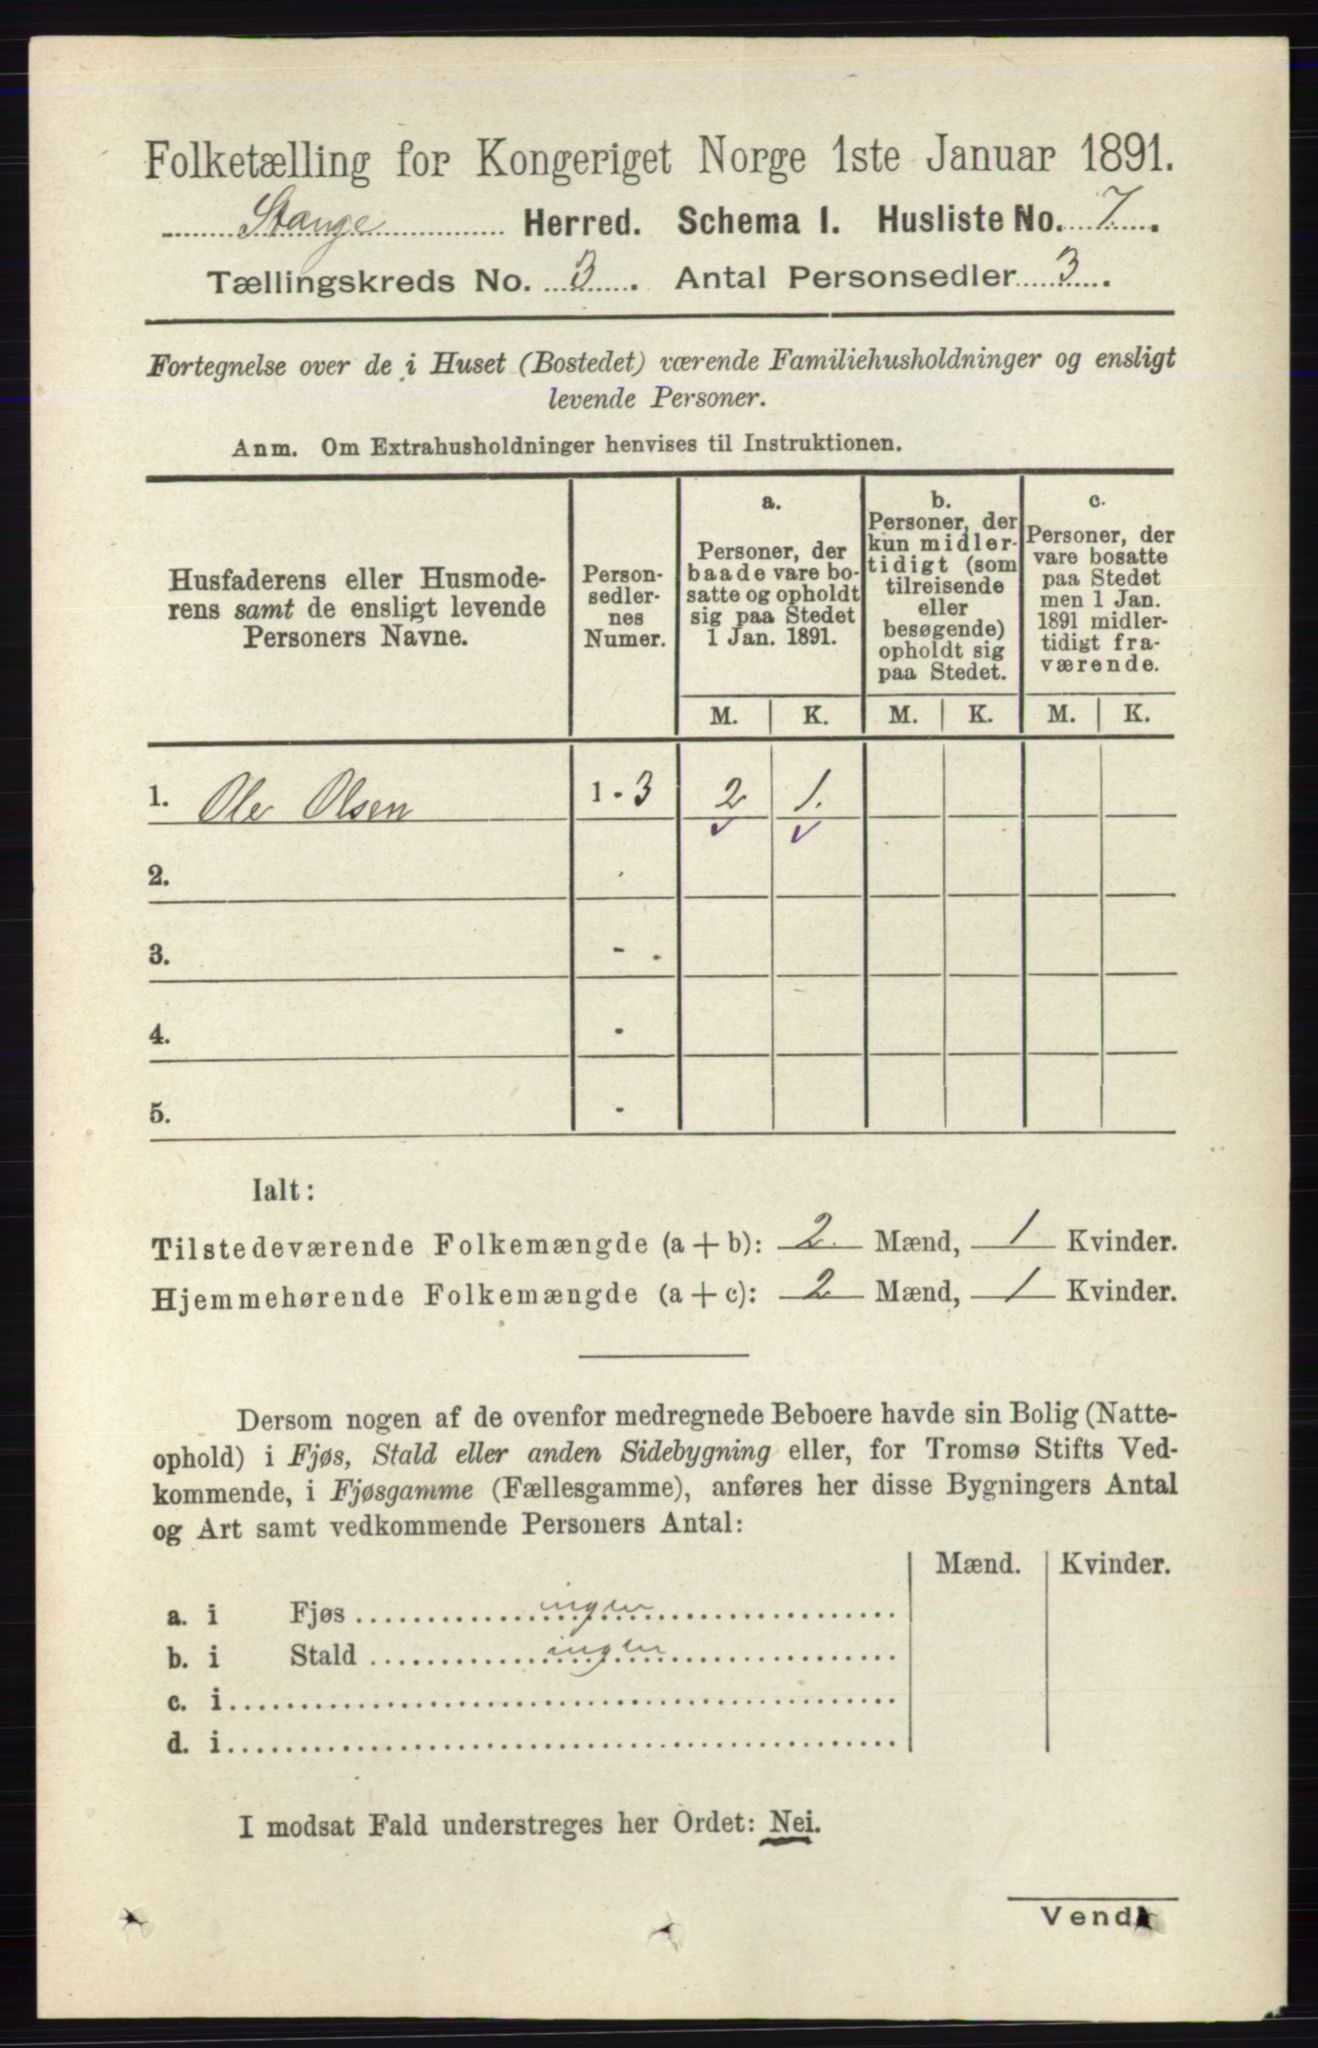 Folketælling for Kongeriget Norge 1ste Januar 1891.
Stange Herred. Schema I. Husliste No. 7.
Tællingskreds No. 3. Antal Personsedler 3.
Fortegnelse over de i Huset (Bostedet) værende Familiehusholdninger og ensligt
levende Personer.
Anm. Om Extrahusholdninger henvises til Instruktionen.
Husfaderens eller Husmode-
rens samt de ensligt levende
Personers Navne.
Person-
sedler-
nes
Numer.
a.
Personer, der
baade vare bo-
satte og opholdt
sig paa Stedet
1 Jan. 1891.
b.
Personer, der
kun midler-
tidigt (som
tilreisende
eller
besøgende)
opholdt sig
paa Stedet.
c.
Personer, der
vare bosatte
paa Stedet
men 1 Jan.
1891 midler-
tidigt fra-
værende.
M. K. M. K. M. K.
1. Ole Olsen 1 - 3 2 1.
2.
3. -
4. -
5. -
Ialt:
Tilstedeværende Folkemængde (a + b): 2 Mænd, 1 Kvinder.
Hjemmehørende Folkemængde (a + c): 2 Mænd, 1 Kvinder.
Dersom nogen af de ovenfor medregnede Beboere havde sin Bolig (Natte-
ophold) i Fjøs, Stald eller anden Sidebygning eller, for Tromsø Stifts Ved-
kommende, i Fjøsgamme (Fællesgamme), anføres her disse Bygningers Antal
og Art samt vedkommende Personers Antal:
Mænd. Kvinder.
a. i Fjøs ingen
b. i Stald ingen
c. i
d. i
I modsat Fald understreges her Ordet: Nei.
Vend!